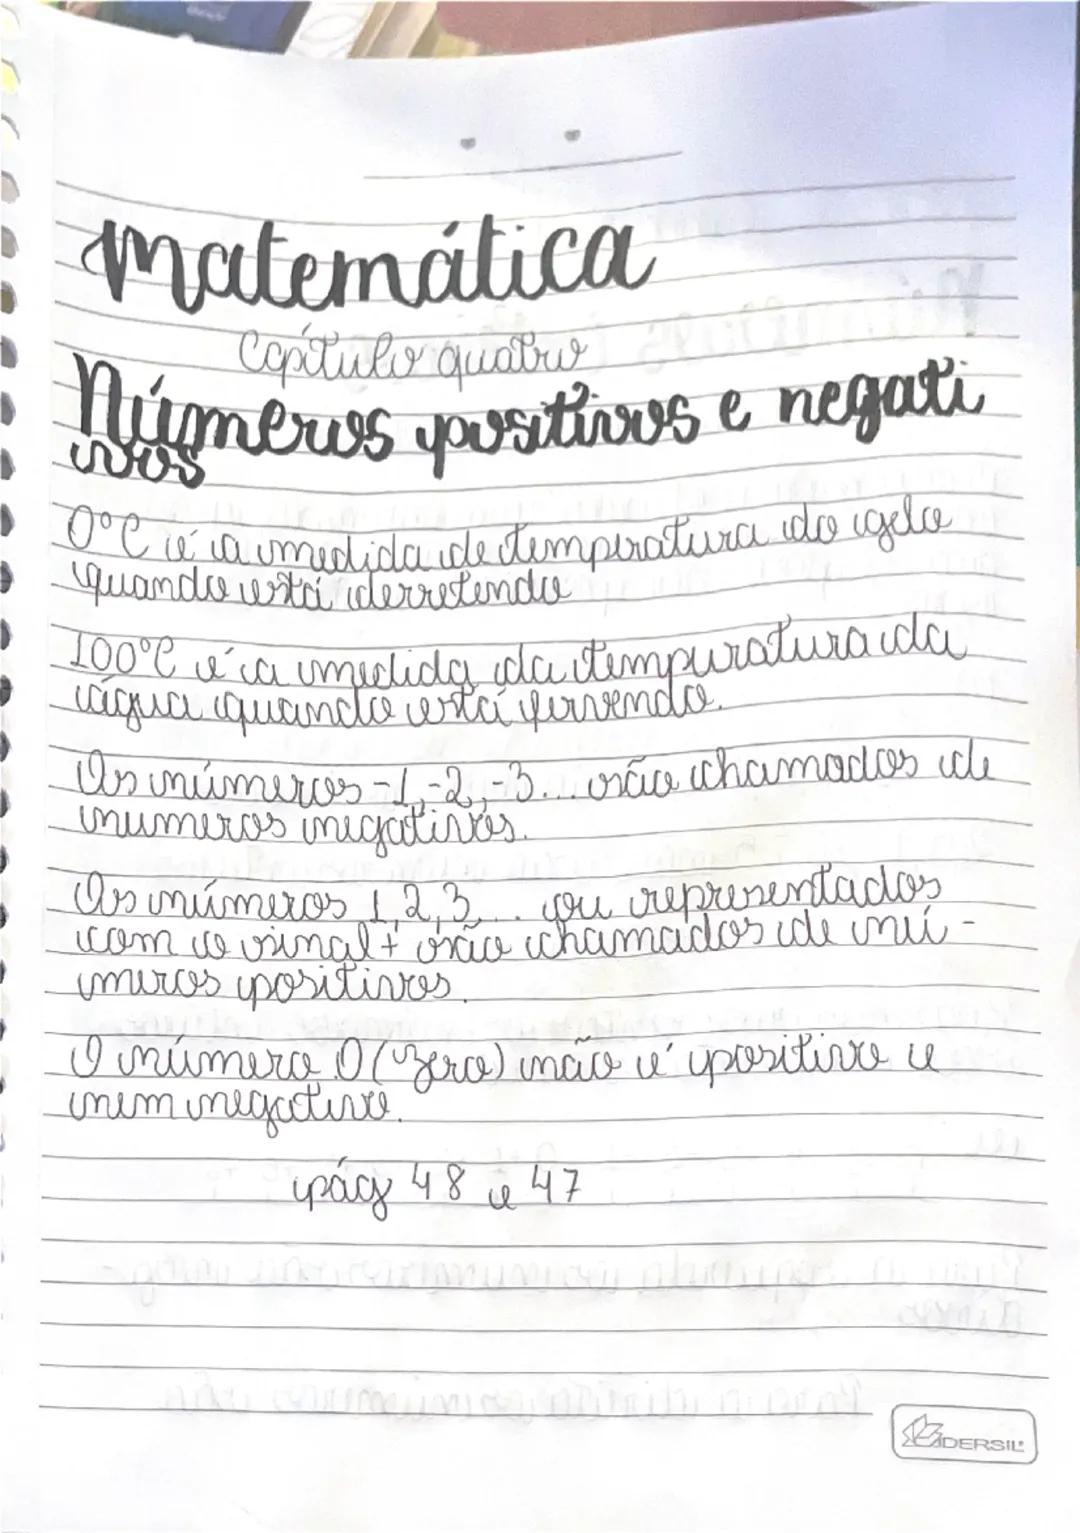 Matemática
Capítulo quatro
Números positivos e negati
vos
0°C é a medida de temperatura do gelo
quando está derretendo
100°C é a medida da temperatura da
água quando está fervendo.
Os números -1,-2,-3... são chamados de
numeros negativos.
Os números 1,2,3... ou representados
com o sinal + são chamados de nú-
meros positivos.
O número 0 (Zero) não é positivo e
nem negativo.
pág 48 e 47
LIDERSIL